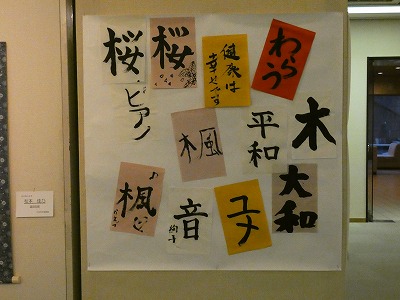 桜
桜
健康は
幸せです
わらう
ピアノ
楓
平和
木
楓
音
絢子
ユメ
大和